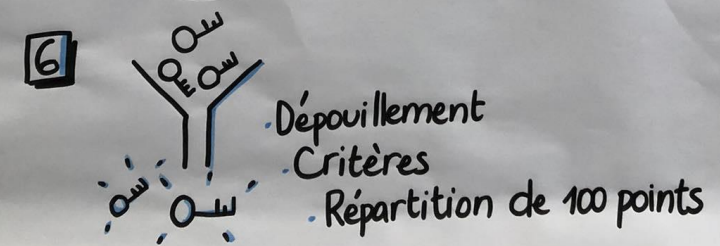 6
• Dépouillement
• Critères
• Répartition de 100 points